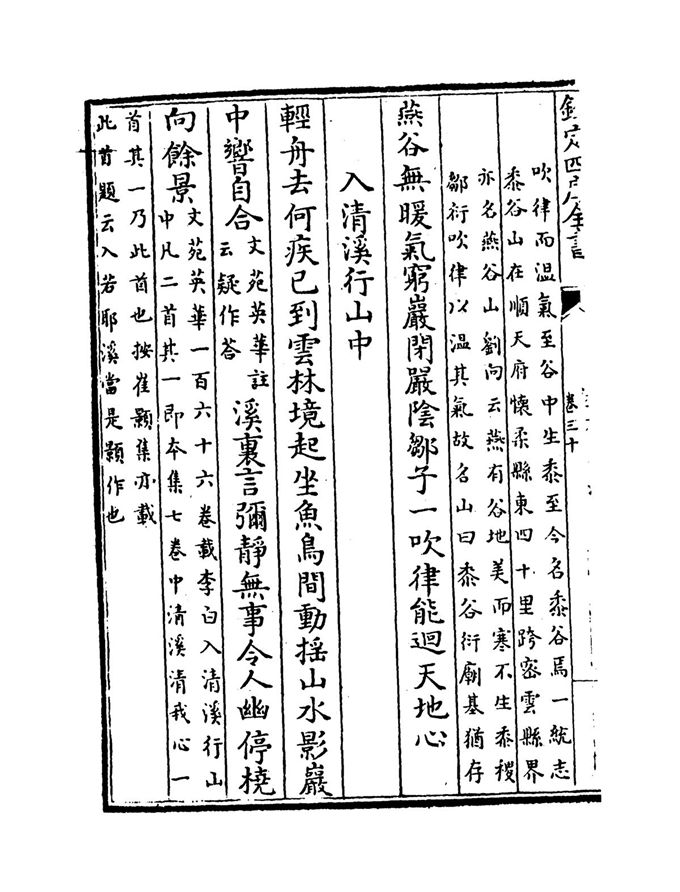 欽定四庫全書
卷三十
吹律而溫氣至谷中生黍至今名黍谷焉一統志
黍谷山在順天府懷柔縣東四十里跨密雲縣界
亦名燕谷山劉向云燕有谷地美而寒不生黍稷
鄒衍吹律以溫其氣故名山曰黍谷衍廟基猶存
燕谷無暖氣窮巖閉嚴陰鄒子一吹律能迴天地心
入清溪行山中
輕舟去何疾已到雲林境起坐魚鳥間動揺山水影巖
中響自合文苑英華註云疑作答溪裏言彌靜無事令人幽停橈
向餘景文苑英華一百六十六卷載李白入清溪行山中凡二首其一即本集七卷中清溪清我心一
首其一乃此首也按崔顥集亦載
此首題云入若耶溪當是顥作也